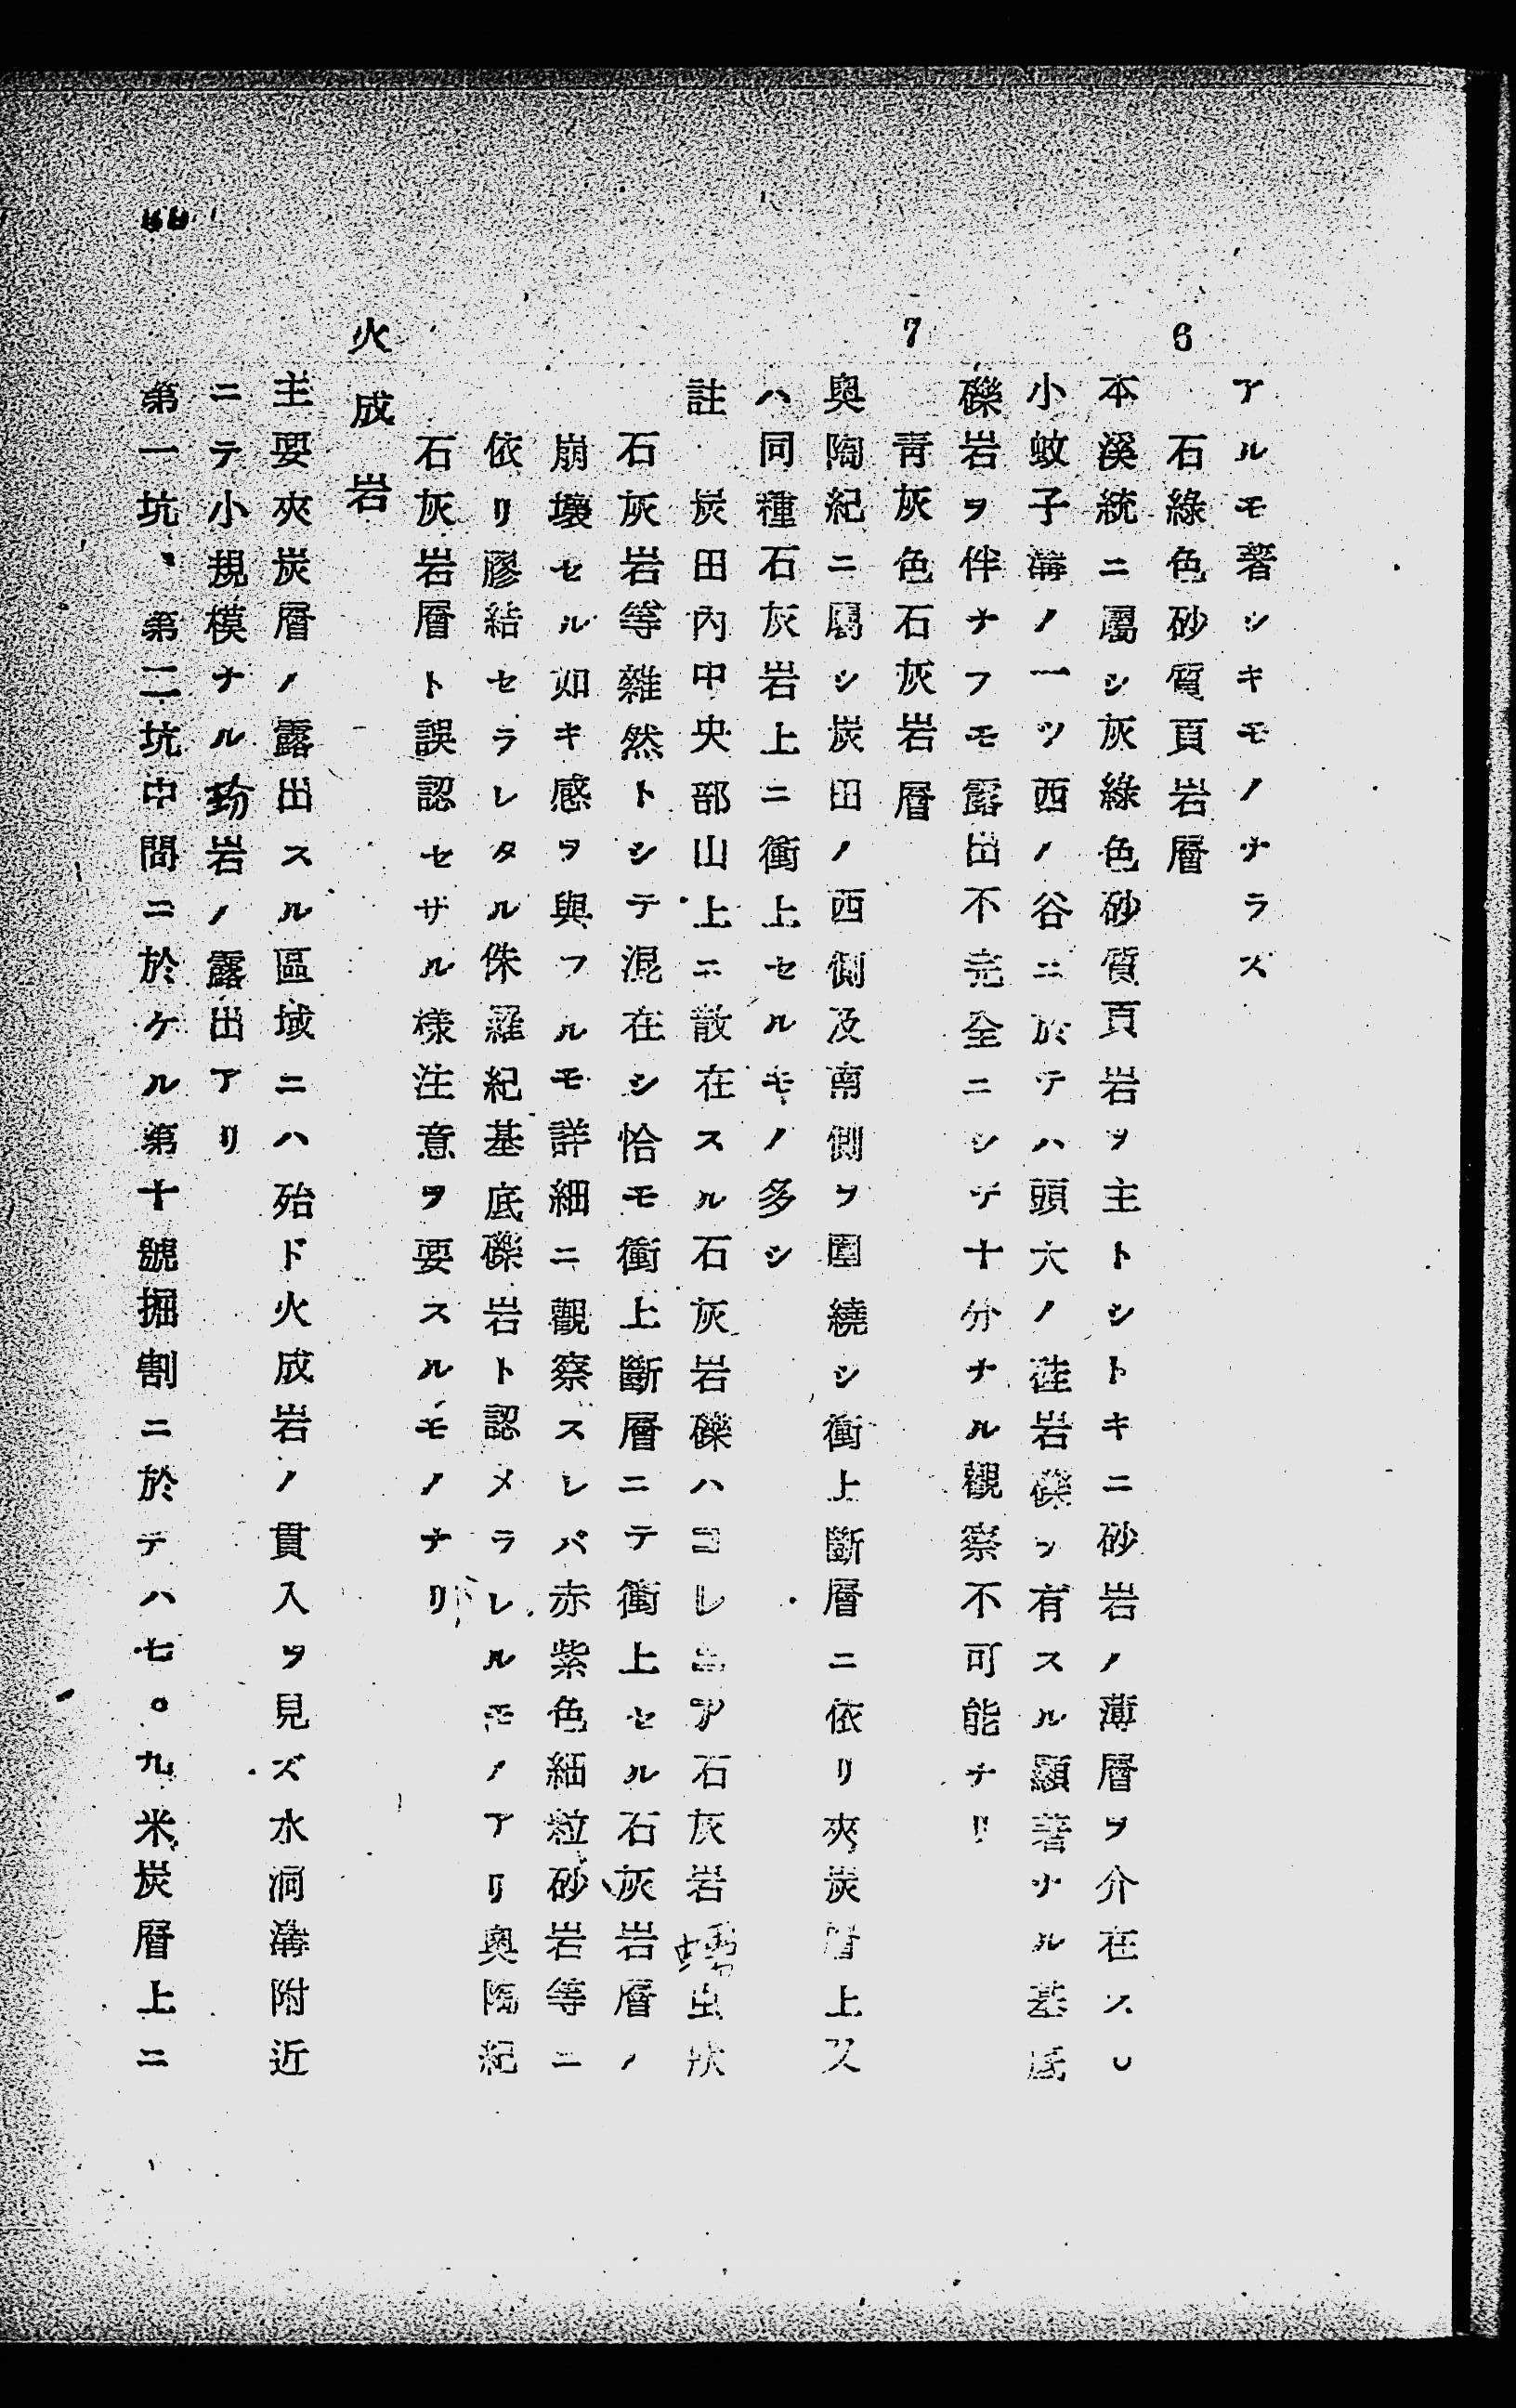 アルモ著シキモノナラズ
6 石綠色砂質頁岩層
本溪統ニ屬シ灰綠色砂質頁岩ヲ主トシトキニ砂岩ノ薄層ヲ介在ス
小蚊子溝ノ一ツ西ノ谷ニ於テハ頭大ノ硅岩礫ヲ有スル顯著ナル基底
礫岩ヲ伴ナフモ露出不完全ニシテ十分ナル觀察不可能ナリ
7 靑灰色石灰岩層
奧陶紀ニ屬シ炭田ノ西側及南側ヲ圍繞シ衝上斷層ニ依リ夾炭層上又
ハ同種石灰岩上ニ衝上セルモノ多シ
註 炭田內中央部山上ニ散在スル石灰岩礫ハコレニア石灰岩 虫狀
石灰岩等雜然トシテ混在シ恰モ衝上斷層ニテ衝上セル石灰岩層ノ
崩壞セル如キ感ヲ與フルモ詳細ニ觀察スレバ赤紫色細粒砂岩等ニ
依リ膠結セラレタル侏羅紀基底礫岩ト認メラレルモノアリ奧陶紀
石灰岩層ト誤認セザル樣注意ヲ要スルモノナリ
火成岩
主要夾炭層ノ露出スル區域ニハ殆ド火成岩ノ貫入ヲ見ズ水洞溝附近
ニテ小規模ナル玢岩ノ露出アリ
第一坑、第二坑中間ニ於ケル第十號掘割ニ於テハ七〇九米炭層上ニ